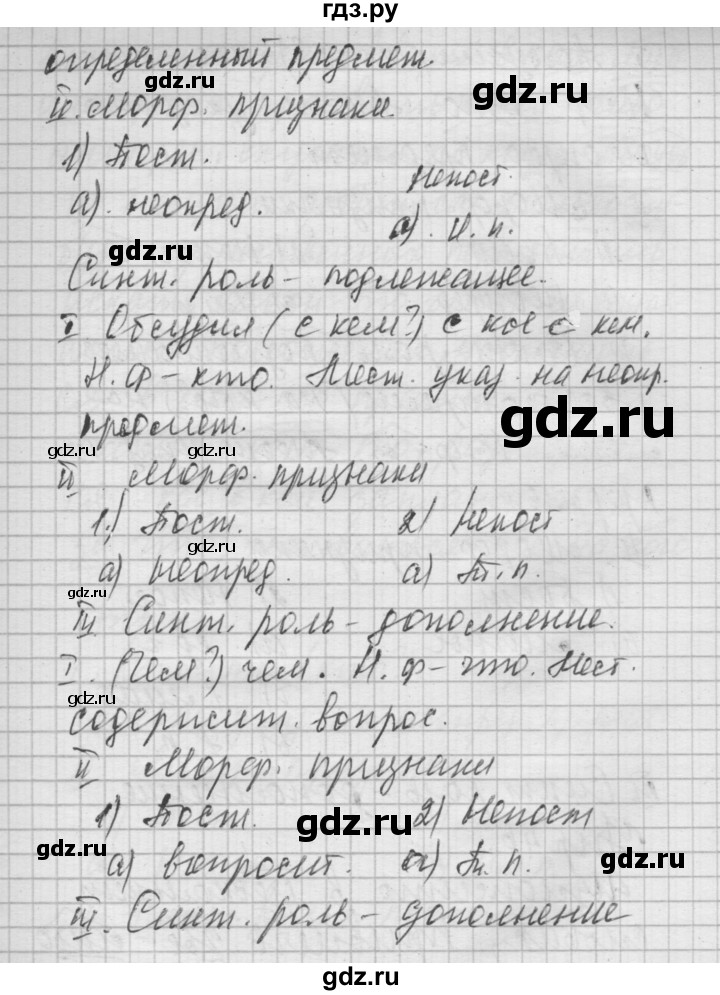 гдз.ру
определенный предмет.
gdz.ru
gdz.ru
II. Морф. признаки
1) Пост.
Непост.
а). неопред.
а). И. п.
gdz.ru
Синт. роль – подлежащее.
I. Обсудил (с кем?) с кое с кем.
Н. ф – кто. Мест. указ. на неопр.
gdz.ru
предмет.
gdz.ru
gdz.ru
II Морф. признаки
1.) Пост. 2) Непост
gdz.ru
а) неопред. а) Т. п.
gdz.ru
III Синт. роль – дополнение.
I. (Чем?) чем. Н. ф – что. Мест.
gdz.ru
содержит. вопрос.
II Морф. признаки
1) Пост. 2) Непост
gdz.ru
gdz.ru
а) вопросит. а) Т. п.
III. Синт. роль – дополнение
gdz.ru